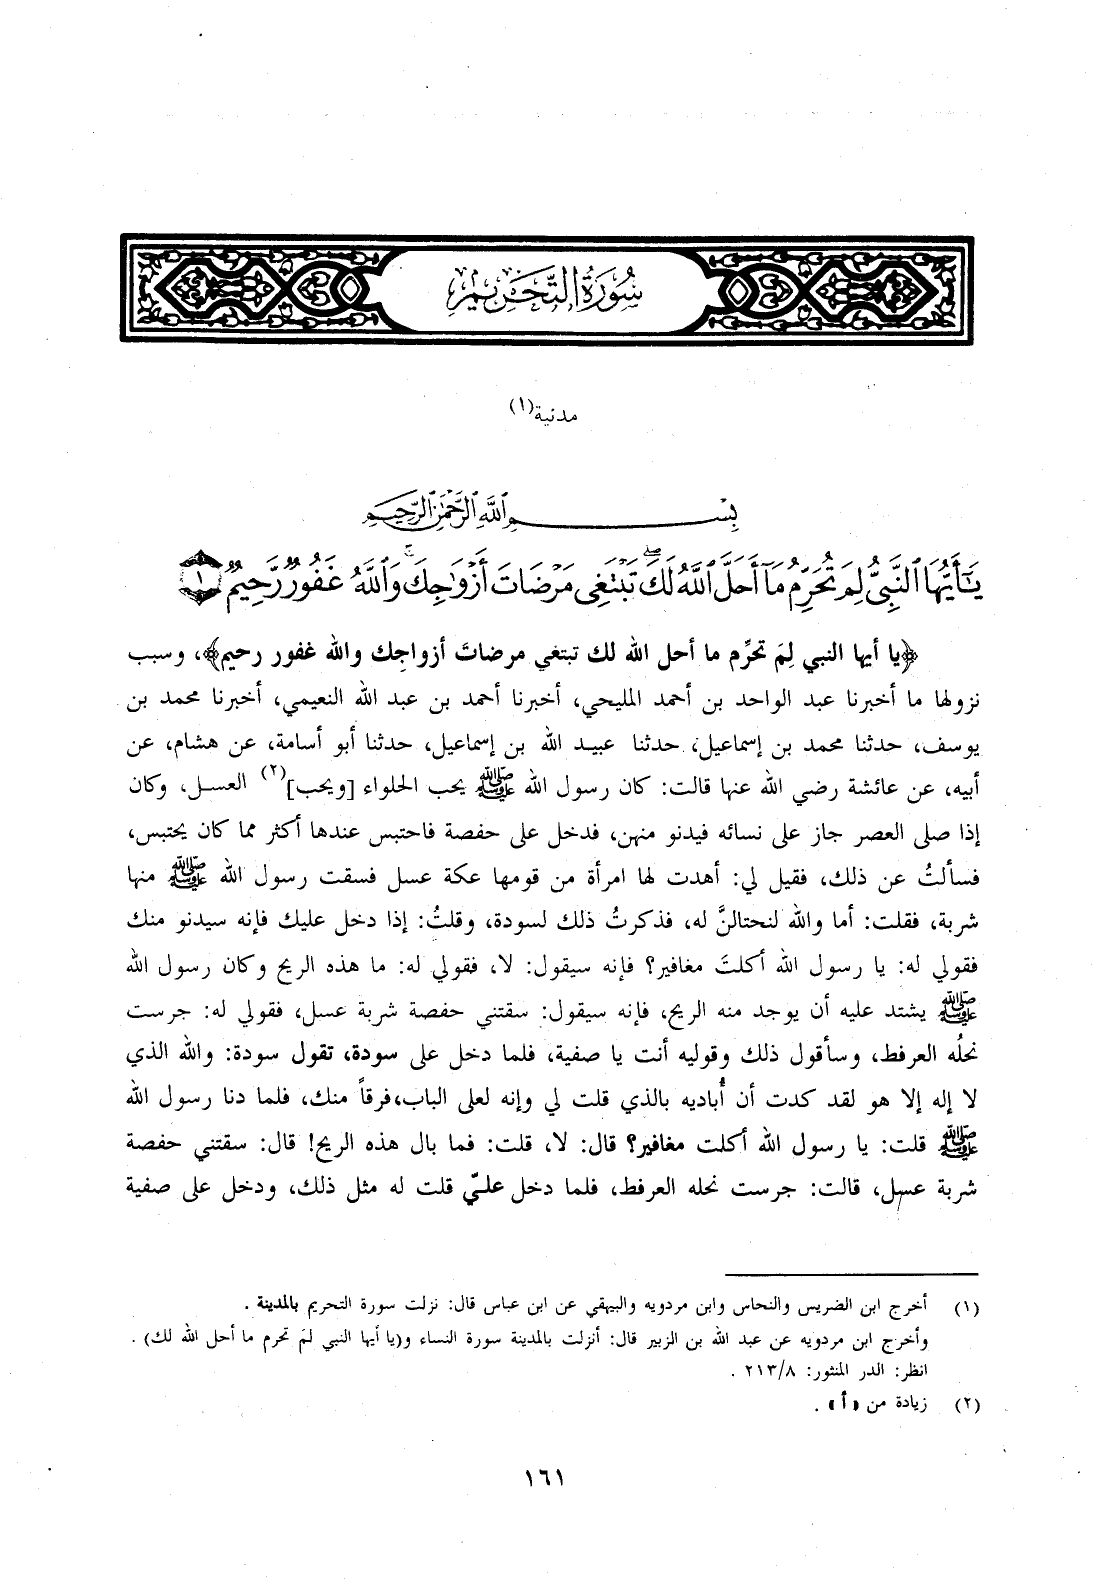 سُورَةُ التَّحْرِيمِ
مدنية(١)
بِسْمِ ٱللَّهِ ٱلرَّحْمَٰنِ ٱلرَّحِيمِ
يَٰٓأَيُّهَا ٱلنَّبِىُّ لِمَ تُحَرِّمُ مَآ أَحَلَّ ٱللَّهُ لَكَ ۖ تَبْتَغِى مَرْضَاتَ أَزْوَٰجِكَ ۚ وَٱللَّهُ غَفُورٌ رَّحِيمٌ ١
﴿يا أيها النبي لِمَ تحرِّم ما أحل الله لك تبتغي مرضاتَ أزواجك والله غفور رحيم﴾، وسبب
نزولها ما أخبرنا عبد الواحد بن أحمد المليحي، أخبرنا أحمد بن عبد الله النعيمي، أخبرنا محمد بن
يوسف، حدثنا محمد بن إسماعيل، حدثنا عبيد الله بن إسماعيل، حدثنا أبو أسامة، عن هشام، عن
أبيه، عن عائشة رضي الله عنها قالت: كان رسول الله ﷺ يحب الحلواء [ويحب](٢) العسل، وكان
إذا صلى العصر جاز على نسائه فيدنو منهن، فدخل على حفصة فاحتبس عندها أكثر مما كان يحتبس،
فسألتُ عن ذلك، فقيل لي: أهدت لها امرأة من قومها عكة عسل فسقت رسول الله ﷺ منها
شربة، فقلت: أما والله لنحتالنَّ له، فذكرتُ ذلك لسودة، وقلتُ: إذا دخل عليك فإنه سيدنو منك
فقولي له: يا رسول الله أكلتَ مغافير؟ فإنه سيقول: لا، فقولي له: ما هذه الريح وكان رسول الله
ﷺ يشتد عليه أن يوجد منه الريح، فإنه سيقول: سقتني حفصة شربة عسل، فقولي له: جرست
نحلُه العرفط، وسأقول ذلك وقوليه أنت يا صفية، فلما دخل على سودة، تقول سودة: والله الذي
لا إله إلا هو لقد كدت أن أُباديه بالذي قلت لي وإنه لعلى الباب،فرقاً منك، فلما دنا رسول الله
ﷺ قلت: يا رسول الله أكلت مغافير؟ قال: لا، قلت: فما بال هذه الريح! قال: سقتني حفصة
شربة عسل، قالت: جرست نحله العرفط، فلما دخل عليّ قلت له مثل ذلك، ودخل على صفية
(١) أخرج ابن الضريس والنحاس وابن مردويه والبيهقي عن ابن عباس قال: نزلت سورة التحريم بالمدينة .
وأخرج ابن مردويه عن عبد الله بن الزبير قال: أنزلت بالمدينة سورة النساء و(يا أيها النبي لمَ تحرم ما أحل الله لك) .
انظر: الدر المنثور: ٢١٣/٨ .
(٢) زيادة من «أ» .
١٦١